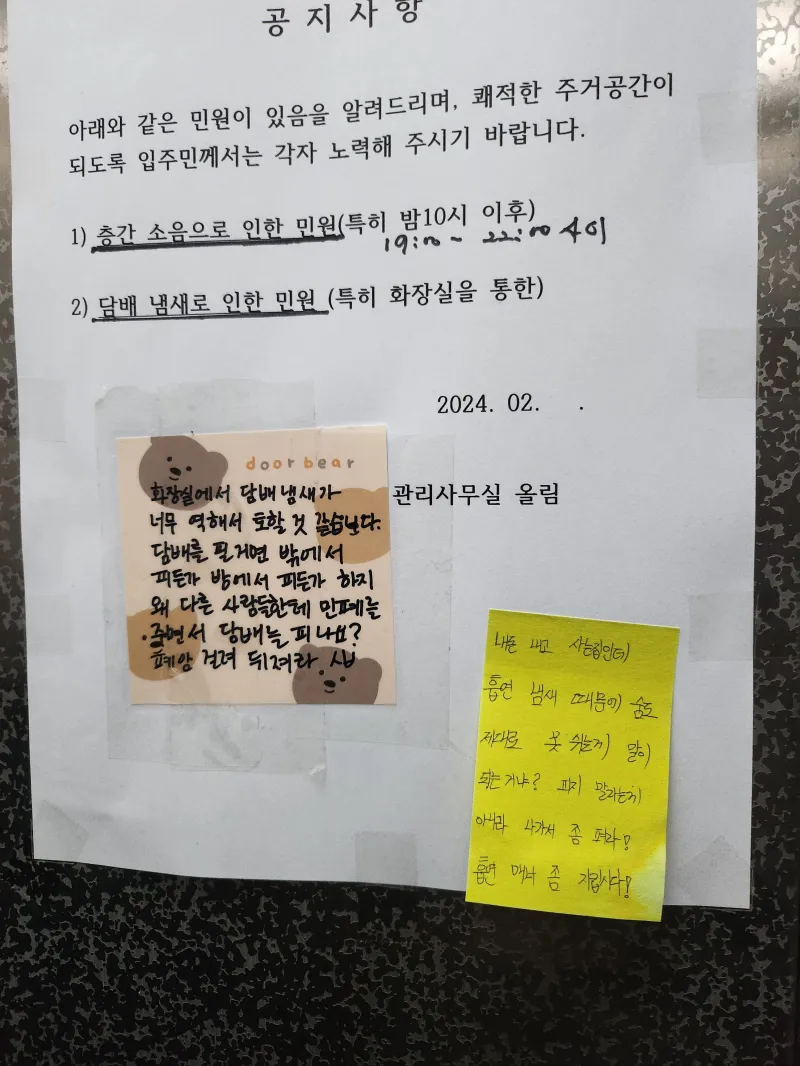 공 지 사 항
아래와 같은 민원이 있음을 알려드리며, 쾌적한 주거공간이
되도록 입주민께서는 각자 노력해 주시기 바랍니다.
1) 층간 소음으로 인한 민원(특히 밤10시 이후)
19:00 ~ 22:00 사이
2) 담배 냄새로 인한 민원 (특히 화장실을 통한)
2024. 02. .
관리사무실 올림
door bear
화장실에서 담배냄새가
너무 역해서 토할 것 같습니다.
담배를 필거면 밖에서
피든가 방에서 피든가 하지
왜 다른 사람들한테 민폐를
주면서 담배를 피나요?
폐암 걸려 뒤져라
내돈 내고 사는집인데
흡연 냄새 때문에 숨도
제대로 못 쉬는게 말이
되는거냐? 피지 말라는게
아니라 나가서 좀 펴라!
흡연 매너 좀 지킵시다!